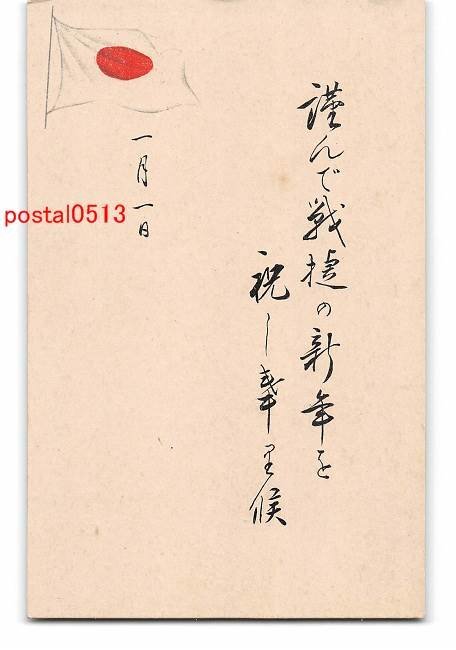 謹んで戦捷の新年を
祝し奉り候
一月一日
postal0513